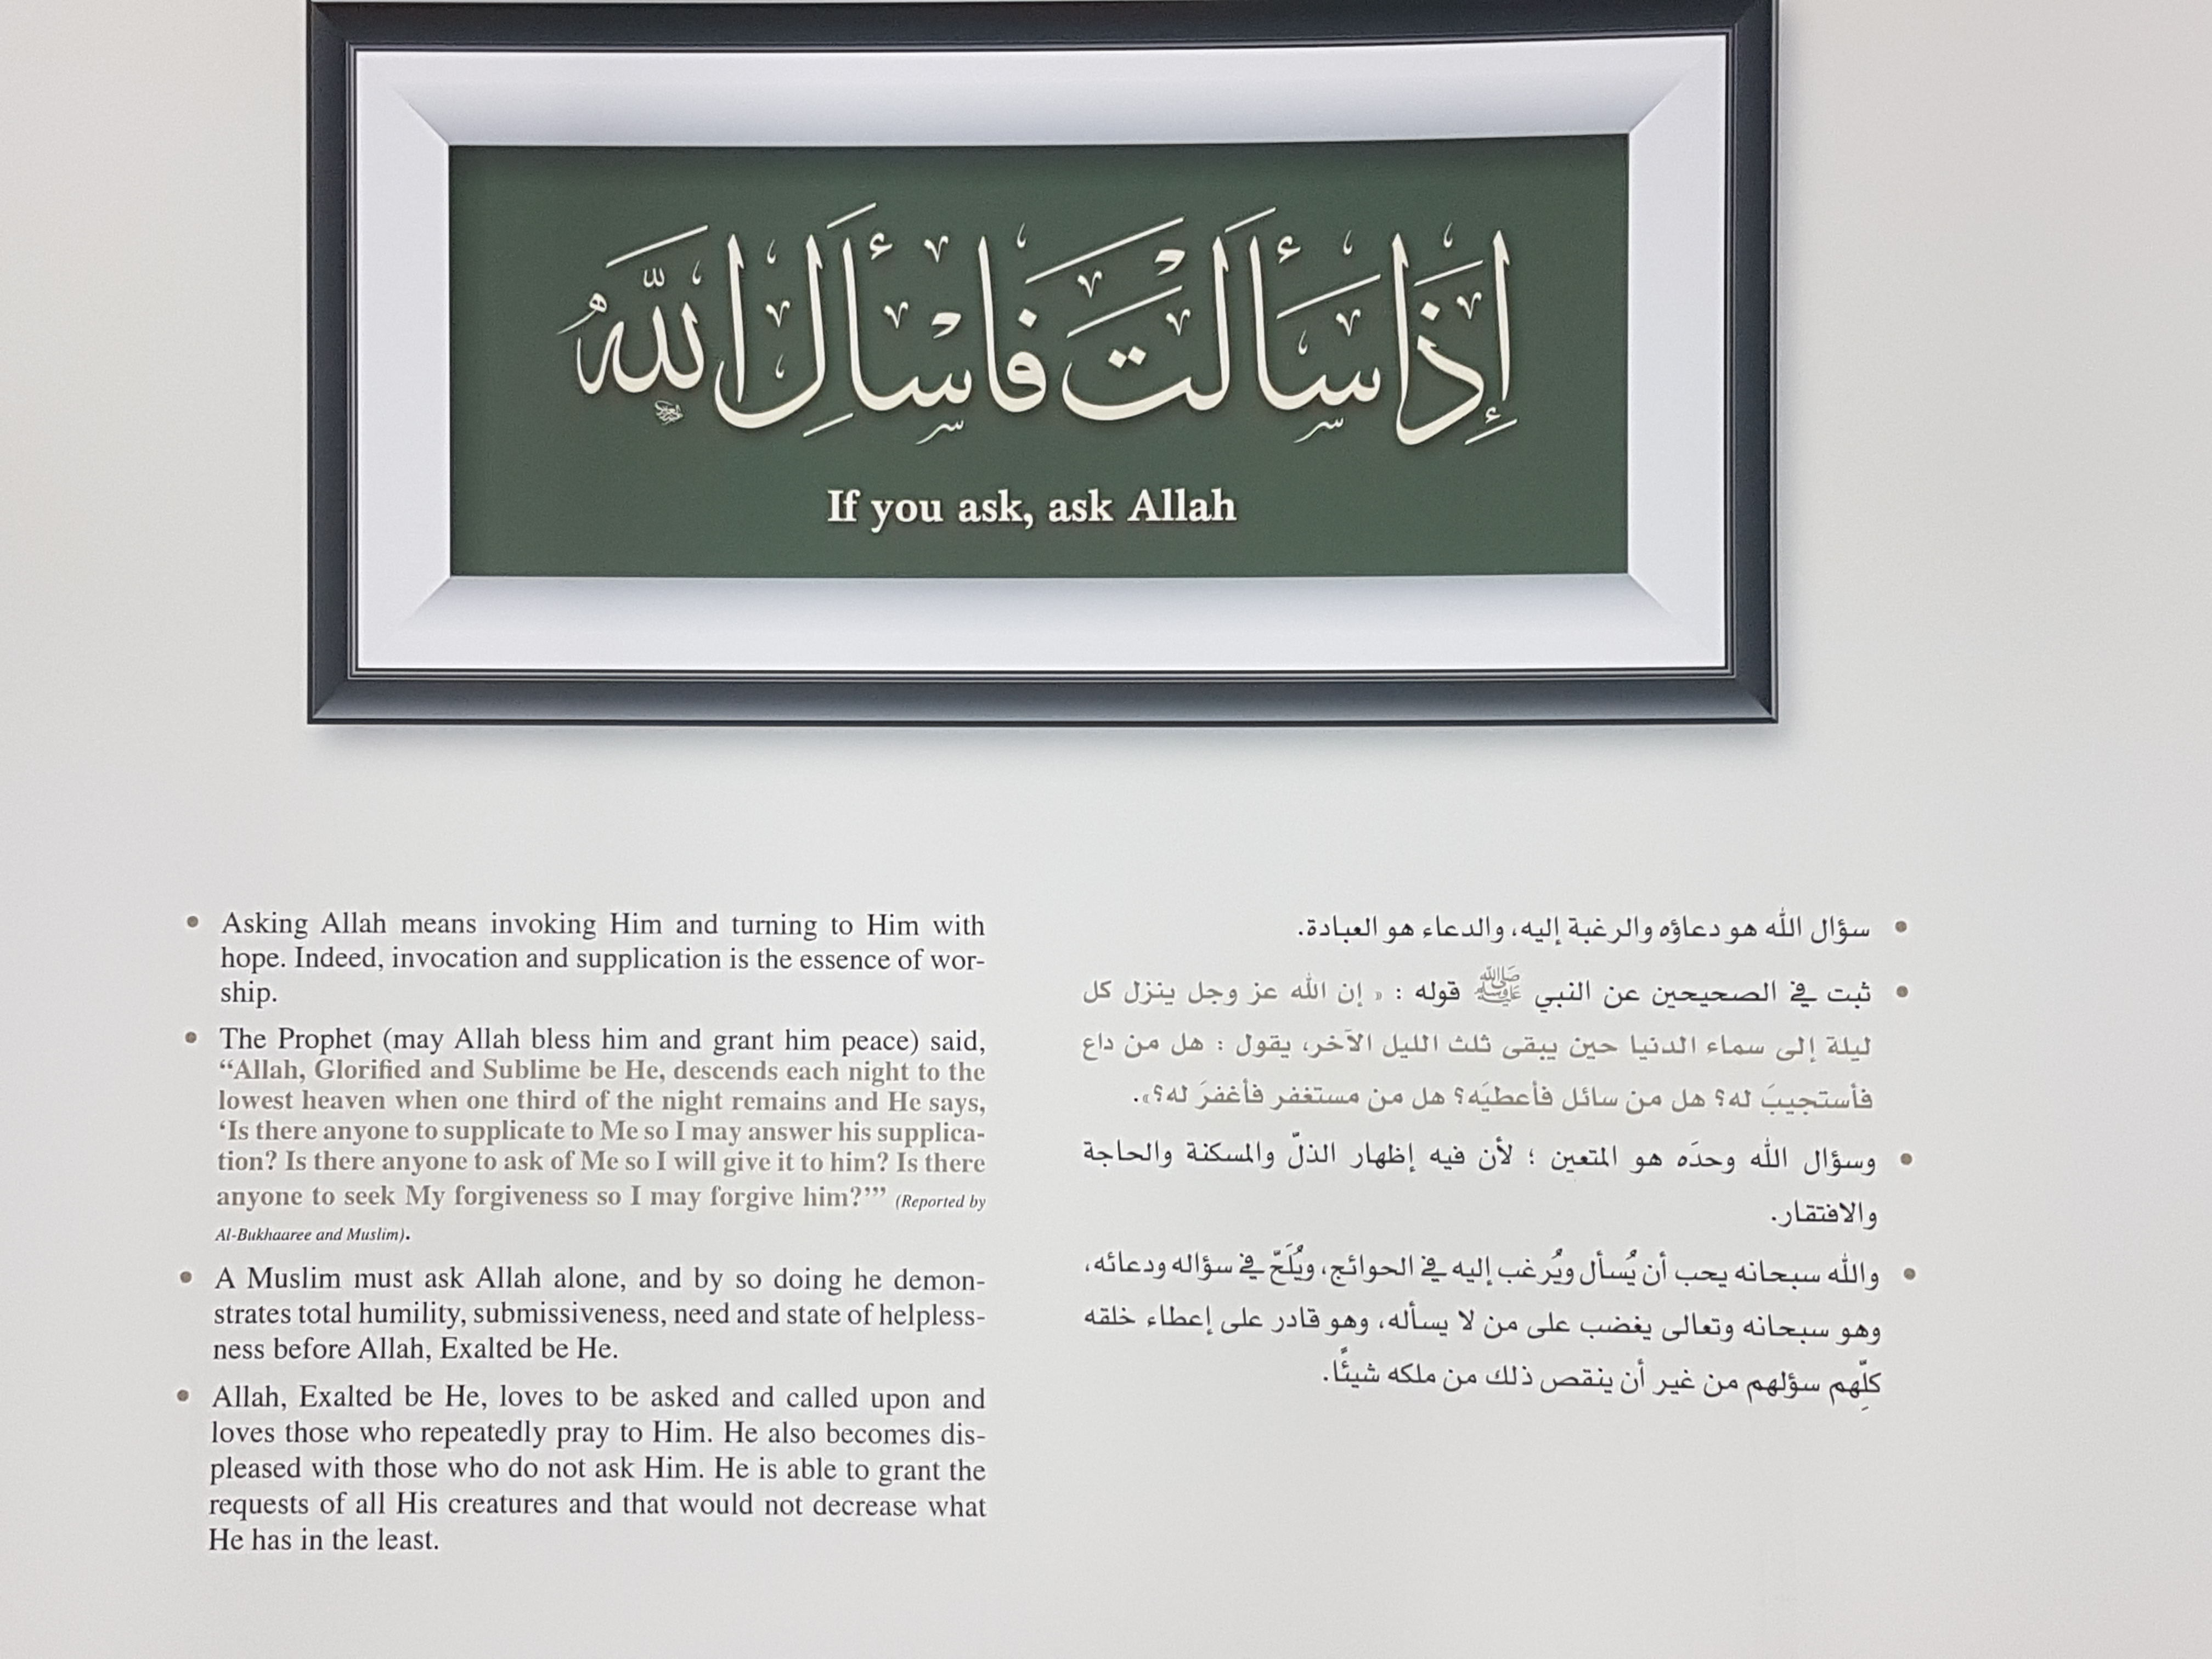 إِذَا سَأَلْتَ فَاسْأَلِ اللَّهَ
If you ask, ask Allah
• Asking Allah means invoking Him and turning to Him with
hope. Indeed, invocation and supplication is the essence of wor-
ship.
• The Prophet (may Allah bless him and grant him peace) said,
“Allah, Glorified and Sublime be He, descends each night to the
lowest heaven when one third of the night remains and He says,
‘Is there anyone to supplicate to Me so I may answer his supplica-
tion? Is there anyone to ask of Me so I will give it to him? Is there
anyone to seek My forgiveness so I may forgive him?’” (Reported by
Al-Bukhaaree and Muslim).
• A Muslim must ask Allah alone, and by so doing he demon-
strates total humility, submissiveness, need and state of helpless-
ness before Allah, Exalted be He.
• Allah, Exalted be He, loves to be asked and called upon and
loves those who repeatedly pray to Him. He also becomes dis-
pleased with those who do not ask Him. He is able to grant the
requests of all His creatures and that would not decrease what
He has in the least.
• سؤال الله هو دعاؤه والرغبة إليه، والدعاء هو العبادة.
• ثبت في الصحيحين عن النبي ﷺ قوله : « إن الله عز وجل ينزل كل
ليلة إلى سماء الدنيا حين يبقى ثلث الليل الآخر، يقول : هل من داع
فأستجيبَ له؟ هل من سائل فأعطيَه؟ هل من مستغفر فأغفرَ له؟».
• وسؤال الله وحدَه هو المتعين ؛ لأن فيه إظهار الذلّ والمسكنة والحاجة
والافتقار.
• والله سبحانه يحب أن يُسأل ويُرغب إليه في الحوائج، ويُلَحّ في سؤاله ودعائه،
وهو سبحانه وتعالى يغضب على من لا يسأله، وهو قادر على إعطاء خلقه
كلِّهم سؤلهم من غير أن ينقص ذلك من ملكه شيئًا.